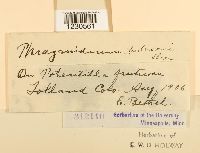 1230561
Phragmidium
On Potentilla fruticosa
Tolland Colo. Aug. 1906
E. Bethel
Herbarium of the University
Minnesota, Minn
Herbarium of
E. W. D. HOLWAY